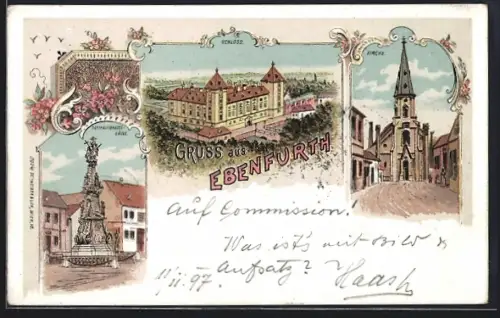 SCHLOSS.
KIRCHE.
DREIFALTIGKEITS
SÄULE.
GRUSS aus
EBENFURTH
Auf Commission.
Was ist's mit Bild &
Aufsatz?
Haash
11/II. 97.